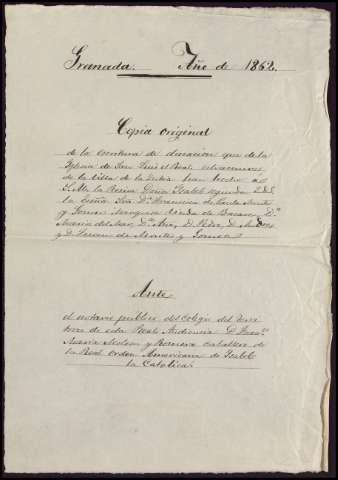 Granada. Año de 1862.
Copia original
de la escritura de donacion que de la
Iglesia de San Luis el Real extramuros
de la Villa de la Zubia han hecho á
S. M. la Reina Doña Isabel segunda
la Exma Sra Dª Francisca de Paula
y Marquesa Viuda de Dª
Maria del Dª Ana, D. Pedro, D.
y D. de Montes y
Ante
el notario publico del Colegio del terri
torio de esta Real Audiencia D. Franco
Maria Molina y Caballero de
la Real Orden Americana de Isabel
la Catolica.